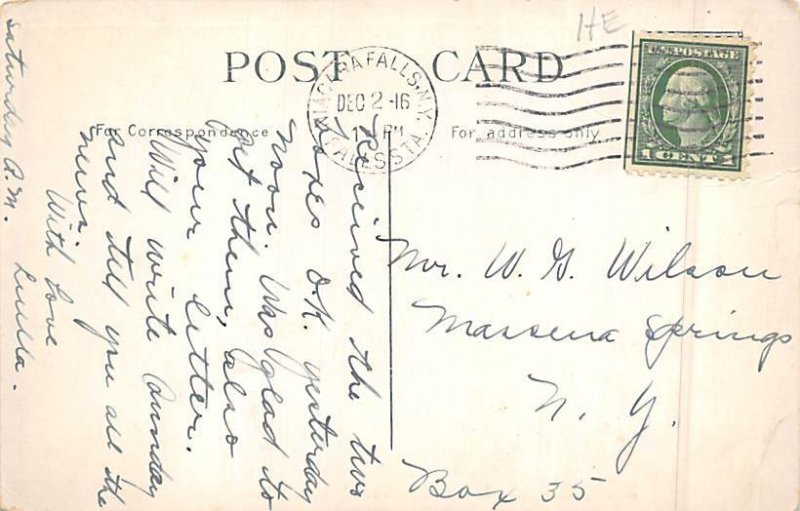 HE
POST CARD
For Correspondence
For address only
NIAGARA FALLS, N.Y.
DEC 2-16
PM
FALLS STA.
U.S. POSTAGE
1 CENT 1
Received the two
boxes O.K. yesterday
noon. Was glad to
get them, also
your letter.
Will write Sunday
and tell you all the
news.
With Love
Luella.
Saturday A.M.
Mr. W. G. Wilson
Massena Springs
N. Y.
Box 35